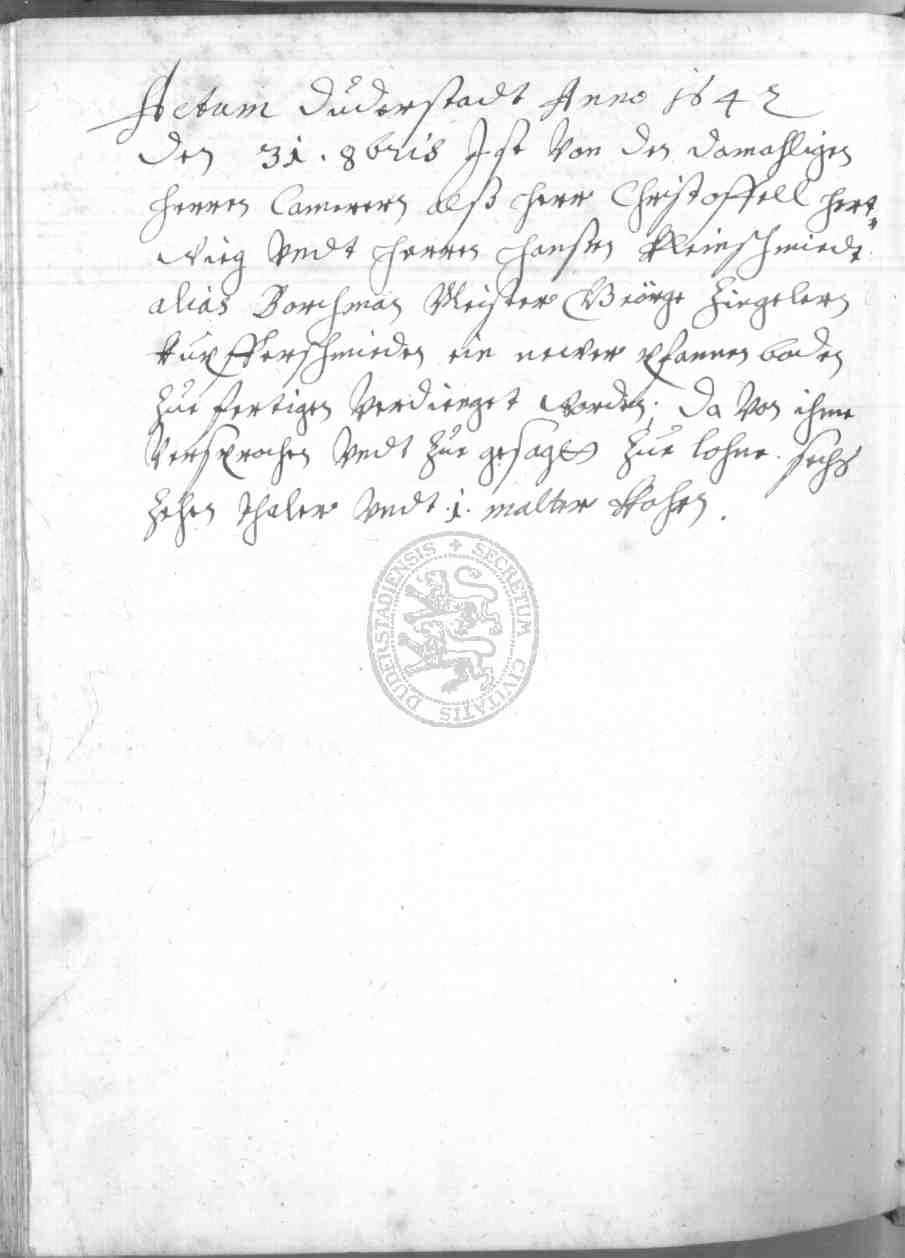 Actum Duderstadt Anno 1642
den 31. 8bris Ist von den damahligen
herren Camerern alß herr Christoffell hert=
wieg undt herren Hansen Kleinschmiedt
alias Borchman Meister Geörge Ziegelern
Kupfferschmieden ein newer pfannen boden
zue fertigen verdienget worden. Da von ihme
versprochen undt zue gesaget zue lohne. sechs
zehen thaler undt .1. malter Rohen.
SECRETUM CIVITATIS DUDERSTADIENSIS